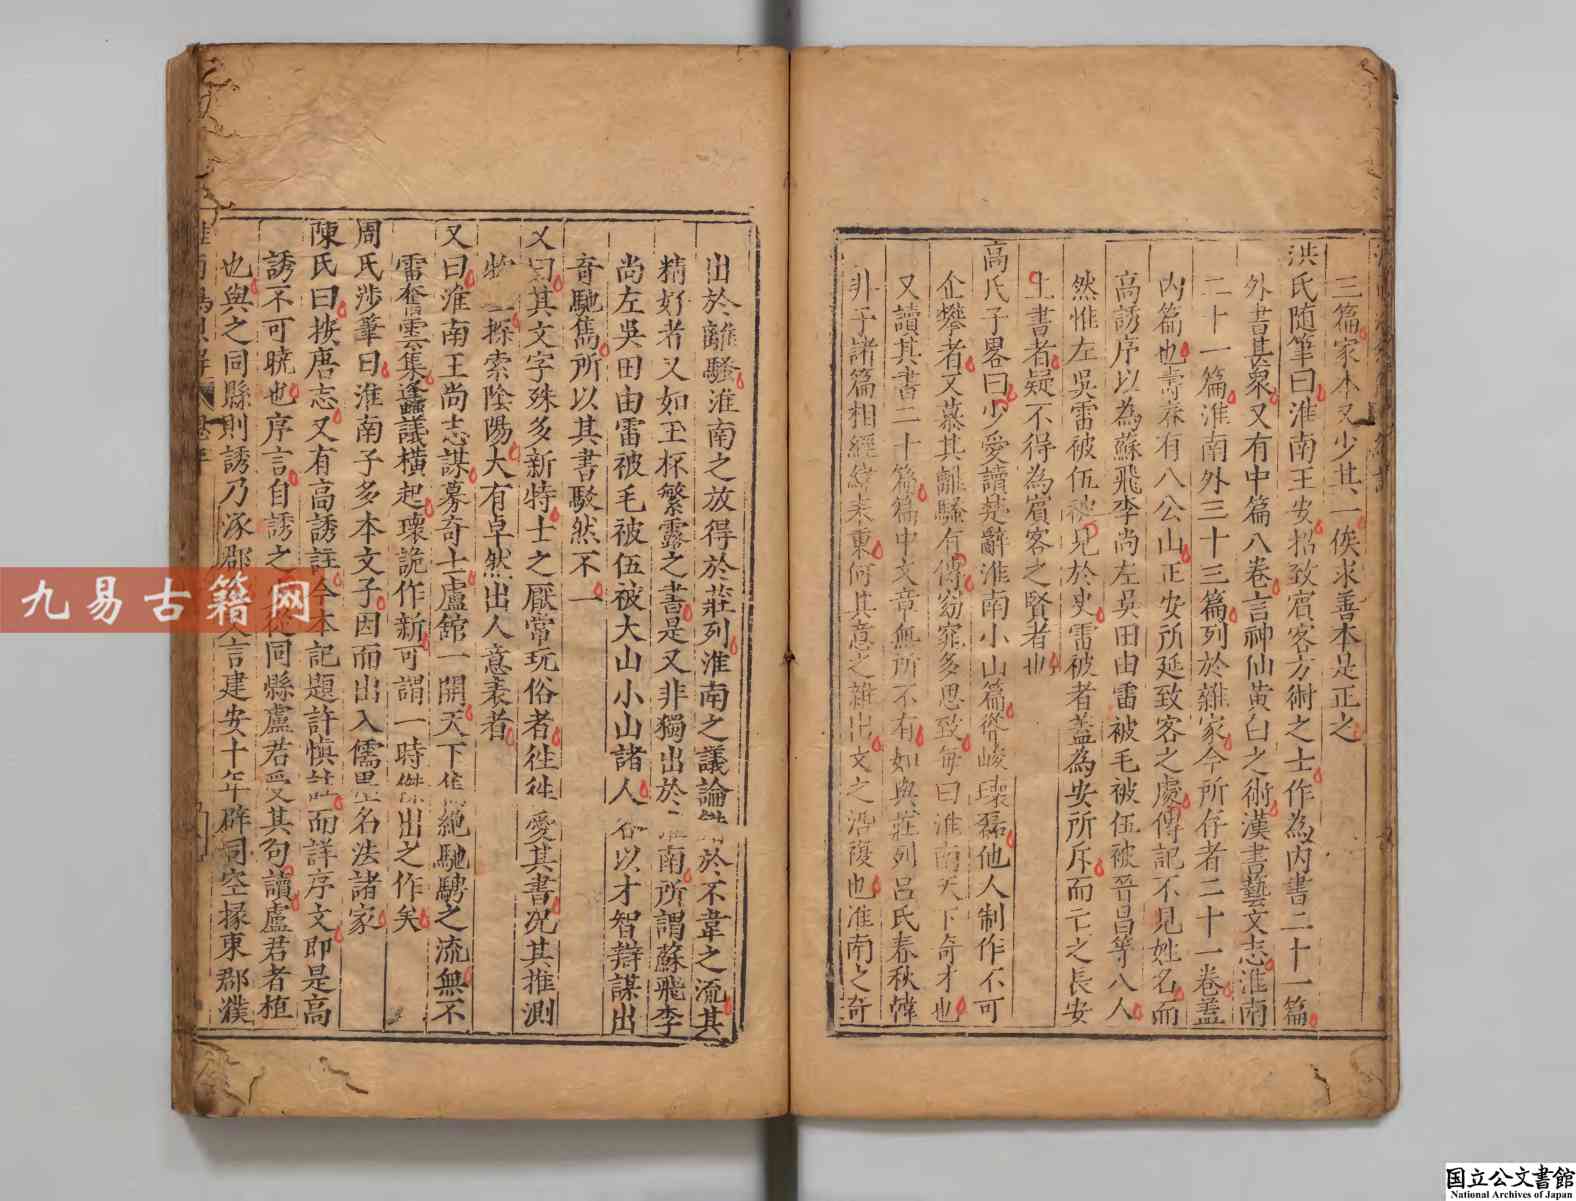 三篇家本又少其一俟求善本是正之
洪氏随筆曰淮南王安招致賓客方術之士作為内書二十一篇
外書甚衆又有中篇八卷言神仙黄白之術漢書藝文志淮南
二十一篇淮南外三十三篇列於雜家今所存者二十一卷蓋
内篇也壽春有八公山正安所延致客之處傳記不見姓名而
高誘序以為蘇飛李尚左吳田由雷被毛被伍被晉昌等八人
然惟左吳雷被伍被見於史雷被者蓋為安所斥而亡之長安
上書者疑不得為賓客之賢者也
高氏子畧曰少愛讀楚辭淮南小山篇聱峻瓌磊他人制作不可
企攀者又慕其離騷有傳窈窕多思致每曰淮南天下奇才也
又讀其書二十篇篇中文章無所不有如與莊列吕氏春秋韓
非子諸篇相經緯表裏何其意之雜出文之沿復也淮南之奇
出於離騷淮南之放得於莊列淮南之議論 於不韋之流其
精好者又如玉杯繁露之書是又非獨出於淮南所謂蘇飛李
尚左吳田由雷被毛被伍被大山小山諸人各以才智辯謀出
奇馳雋所以其書駁然不一
又曰其文字殊多新特士之厭常玩俗者徃徃愛其書况其推測
物 探索陰陽大有卓然出人意表者
又曰淮南王尚志謀募奇士盧館一開天下 絶馳騁之流無不
雷奮雲集蠭議横起瓌詭作新可謂一時傑出之作矣
周氏涉筆曰淮南子多本文子因而出入儒墨名法諸家
陳氏曰按唐志又有高誘註今本記題許慎註而詳序文即是高
誘不可曉也序言自誘之 從同縣盧君受其句讀盧君者植
也與之同縣則誘乃涿郡 言建安十年辟司空掾東郡濮
九易古籍网
国立公文書館
National Archives of Japan